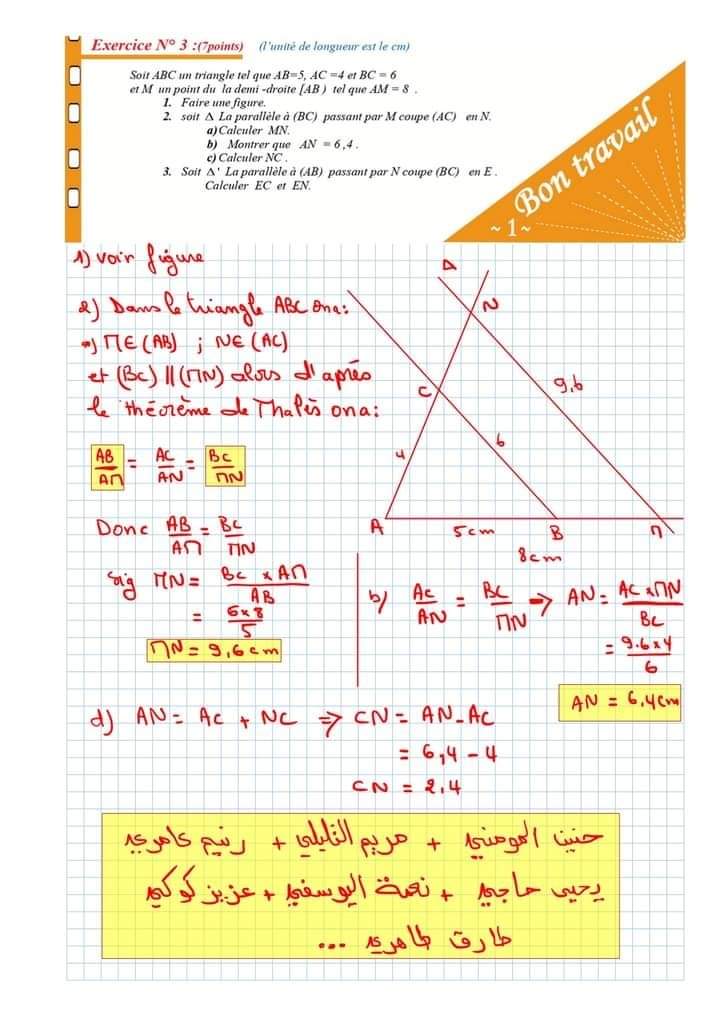 Exercice N° 3 :(7points) (l'unité de longueur est le cm)
Soit ABC un triangle tel que AB=5, AC =4 et BC = 6
et M un point du la demi -droite [AB ) tel que AM = 8 .
1. Faire une figure.
2. soit Δ La parallèle à (BC) passant par M coupe (AC) en N.
a)Calculer MN.
b) Montrer que AN = 6,4 .
c) Calculer NC .
3. Soit Δ' La parallèle à (AB) passant par N coupe (BC) en E .
Calculer EC et EN.
Bon travail
~ 1~
1) voir figure
2) Dans le triangle ABC ona:
a) M∈(AB) ; N∈(AC)
et (BC) || (MN) alors d'après
le théorème de Thalès ona:
AB/AM = AC/AN = BC/MN
Donc AB/AM = BC/MN
sig MN = BC x AM/AB
= 6x8/5
MN = 9,6cm
Δ
N
C
9,6
6
4
A
5cm
B
M
8cm
b) AC/AN = BC/MN => AN = AC x MN/BC
= 9.6x4/6
AN = 6,4cm
d) AN = AC + NC => CN = AN - AC
= 6,4 - 4
CN = 2,4
حنين المومني + مريم التليلي + رنيم عامري
يحيى حاجي + نعمة اليوسفي + عزيز كوكي
طارق طاهري ...